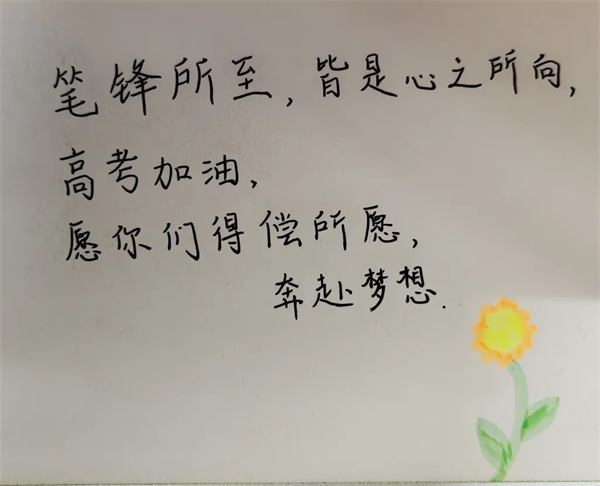 笔锋所至,皆是心之所向,
高考加油,
愿你们得偿所愿,
奔赴梦想.